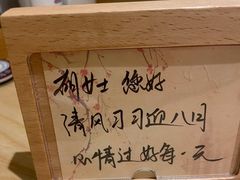 胡女士 您好
清风习习迎八月
心情过好每一天